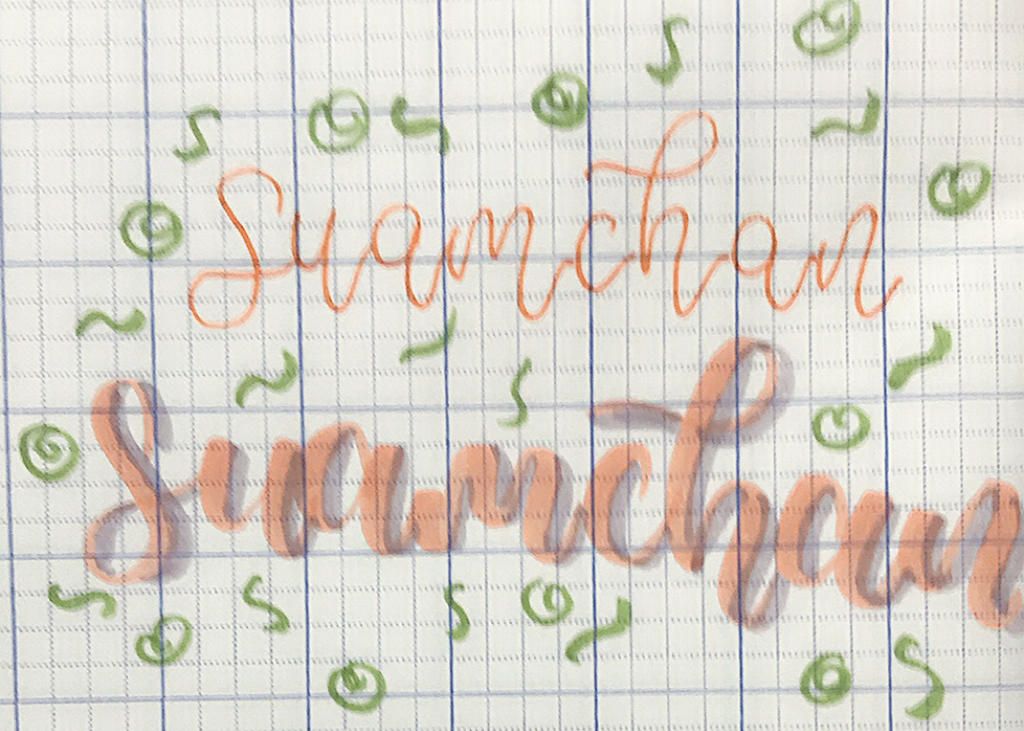 Suamchan
Suamchan